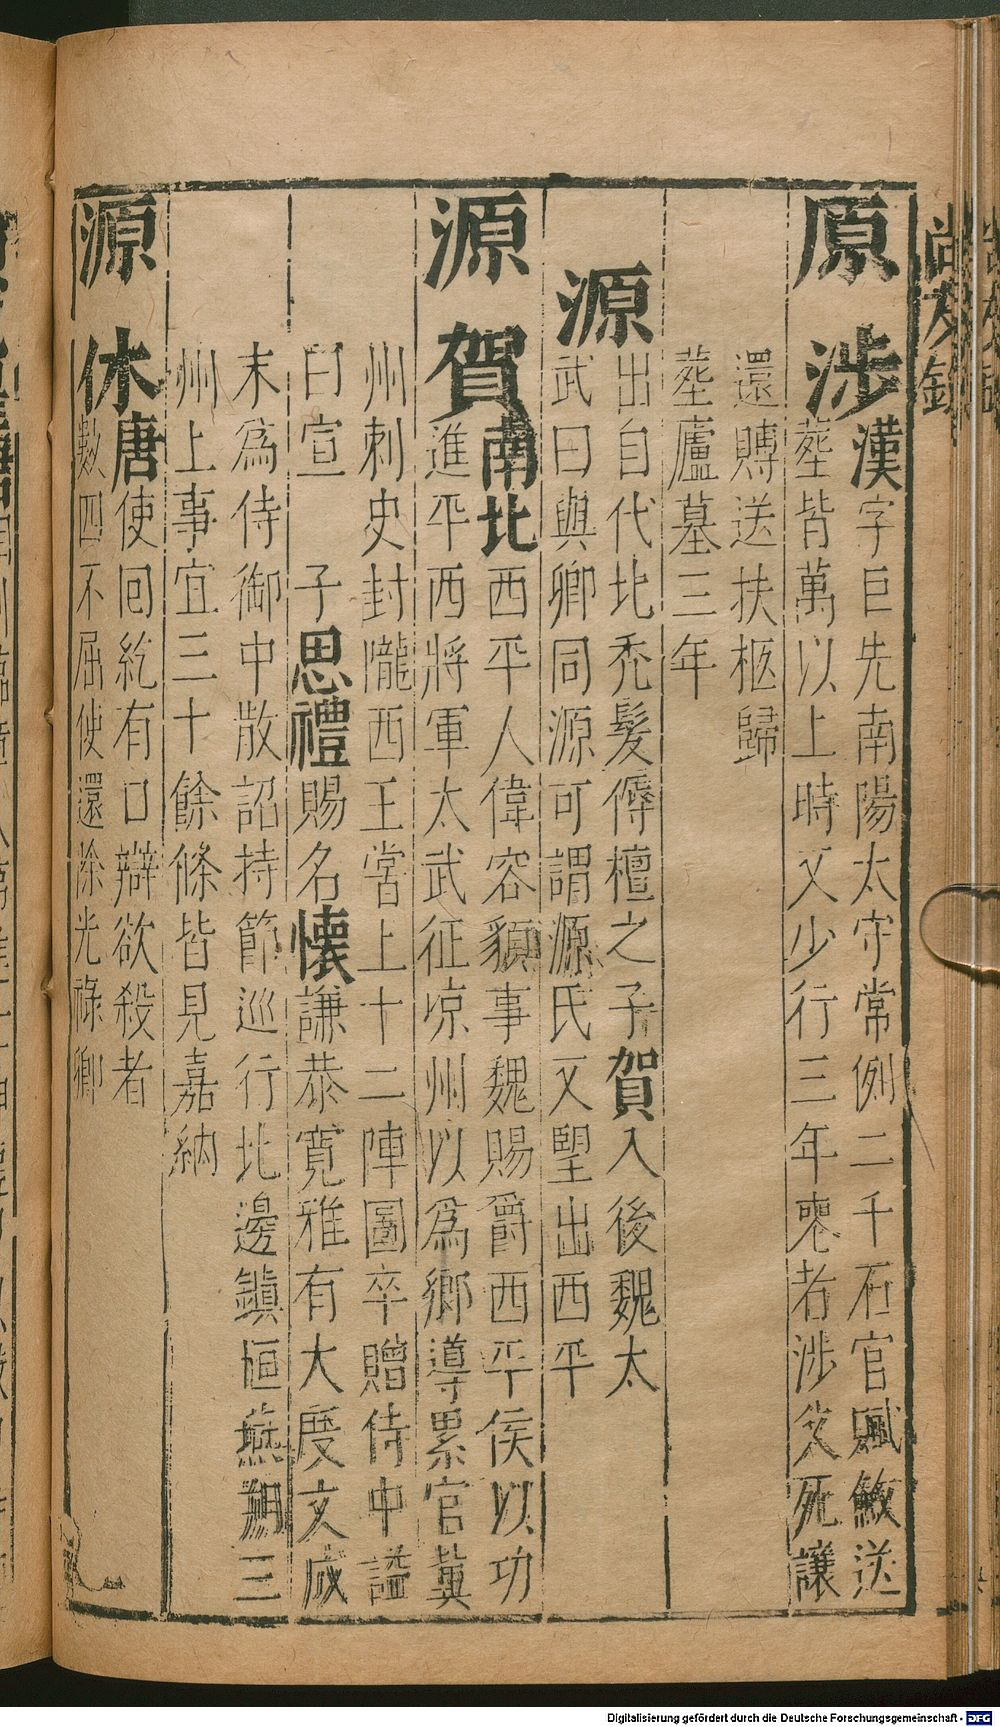 原涉漢字巨先南陽太守常例二千石官賦斂送
葬皆萬以上時又少行三年喪者涉父死讓
還賻送扶柩歸
葬廬墓三年
源出自代北禿髮傉檀之子賀入後魏太
武曰與卿同源可謂源氏又望出西平
源賀南北西平人偉容貌事魏賜爵西平侯以功
進平西將軍太武征凉州以爲鄉導累官冀
州刺史封隴西王嘗上十二陣圖卒贈侍中謚
曰宣 子思禮賜名懷謙恭寬雅有大度文成
末爲侍御中散詔持節巡行北邊鎮恒燕朔三
州上事宜三十餘條皆見嘉納
源休唐使回紇有口辯欲殺者
數四不屈使還除光祿卿
尚友錄
Digitalisierung gefördert durch die Deutsche Forschungsgemeinschaft - DFG